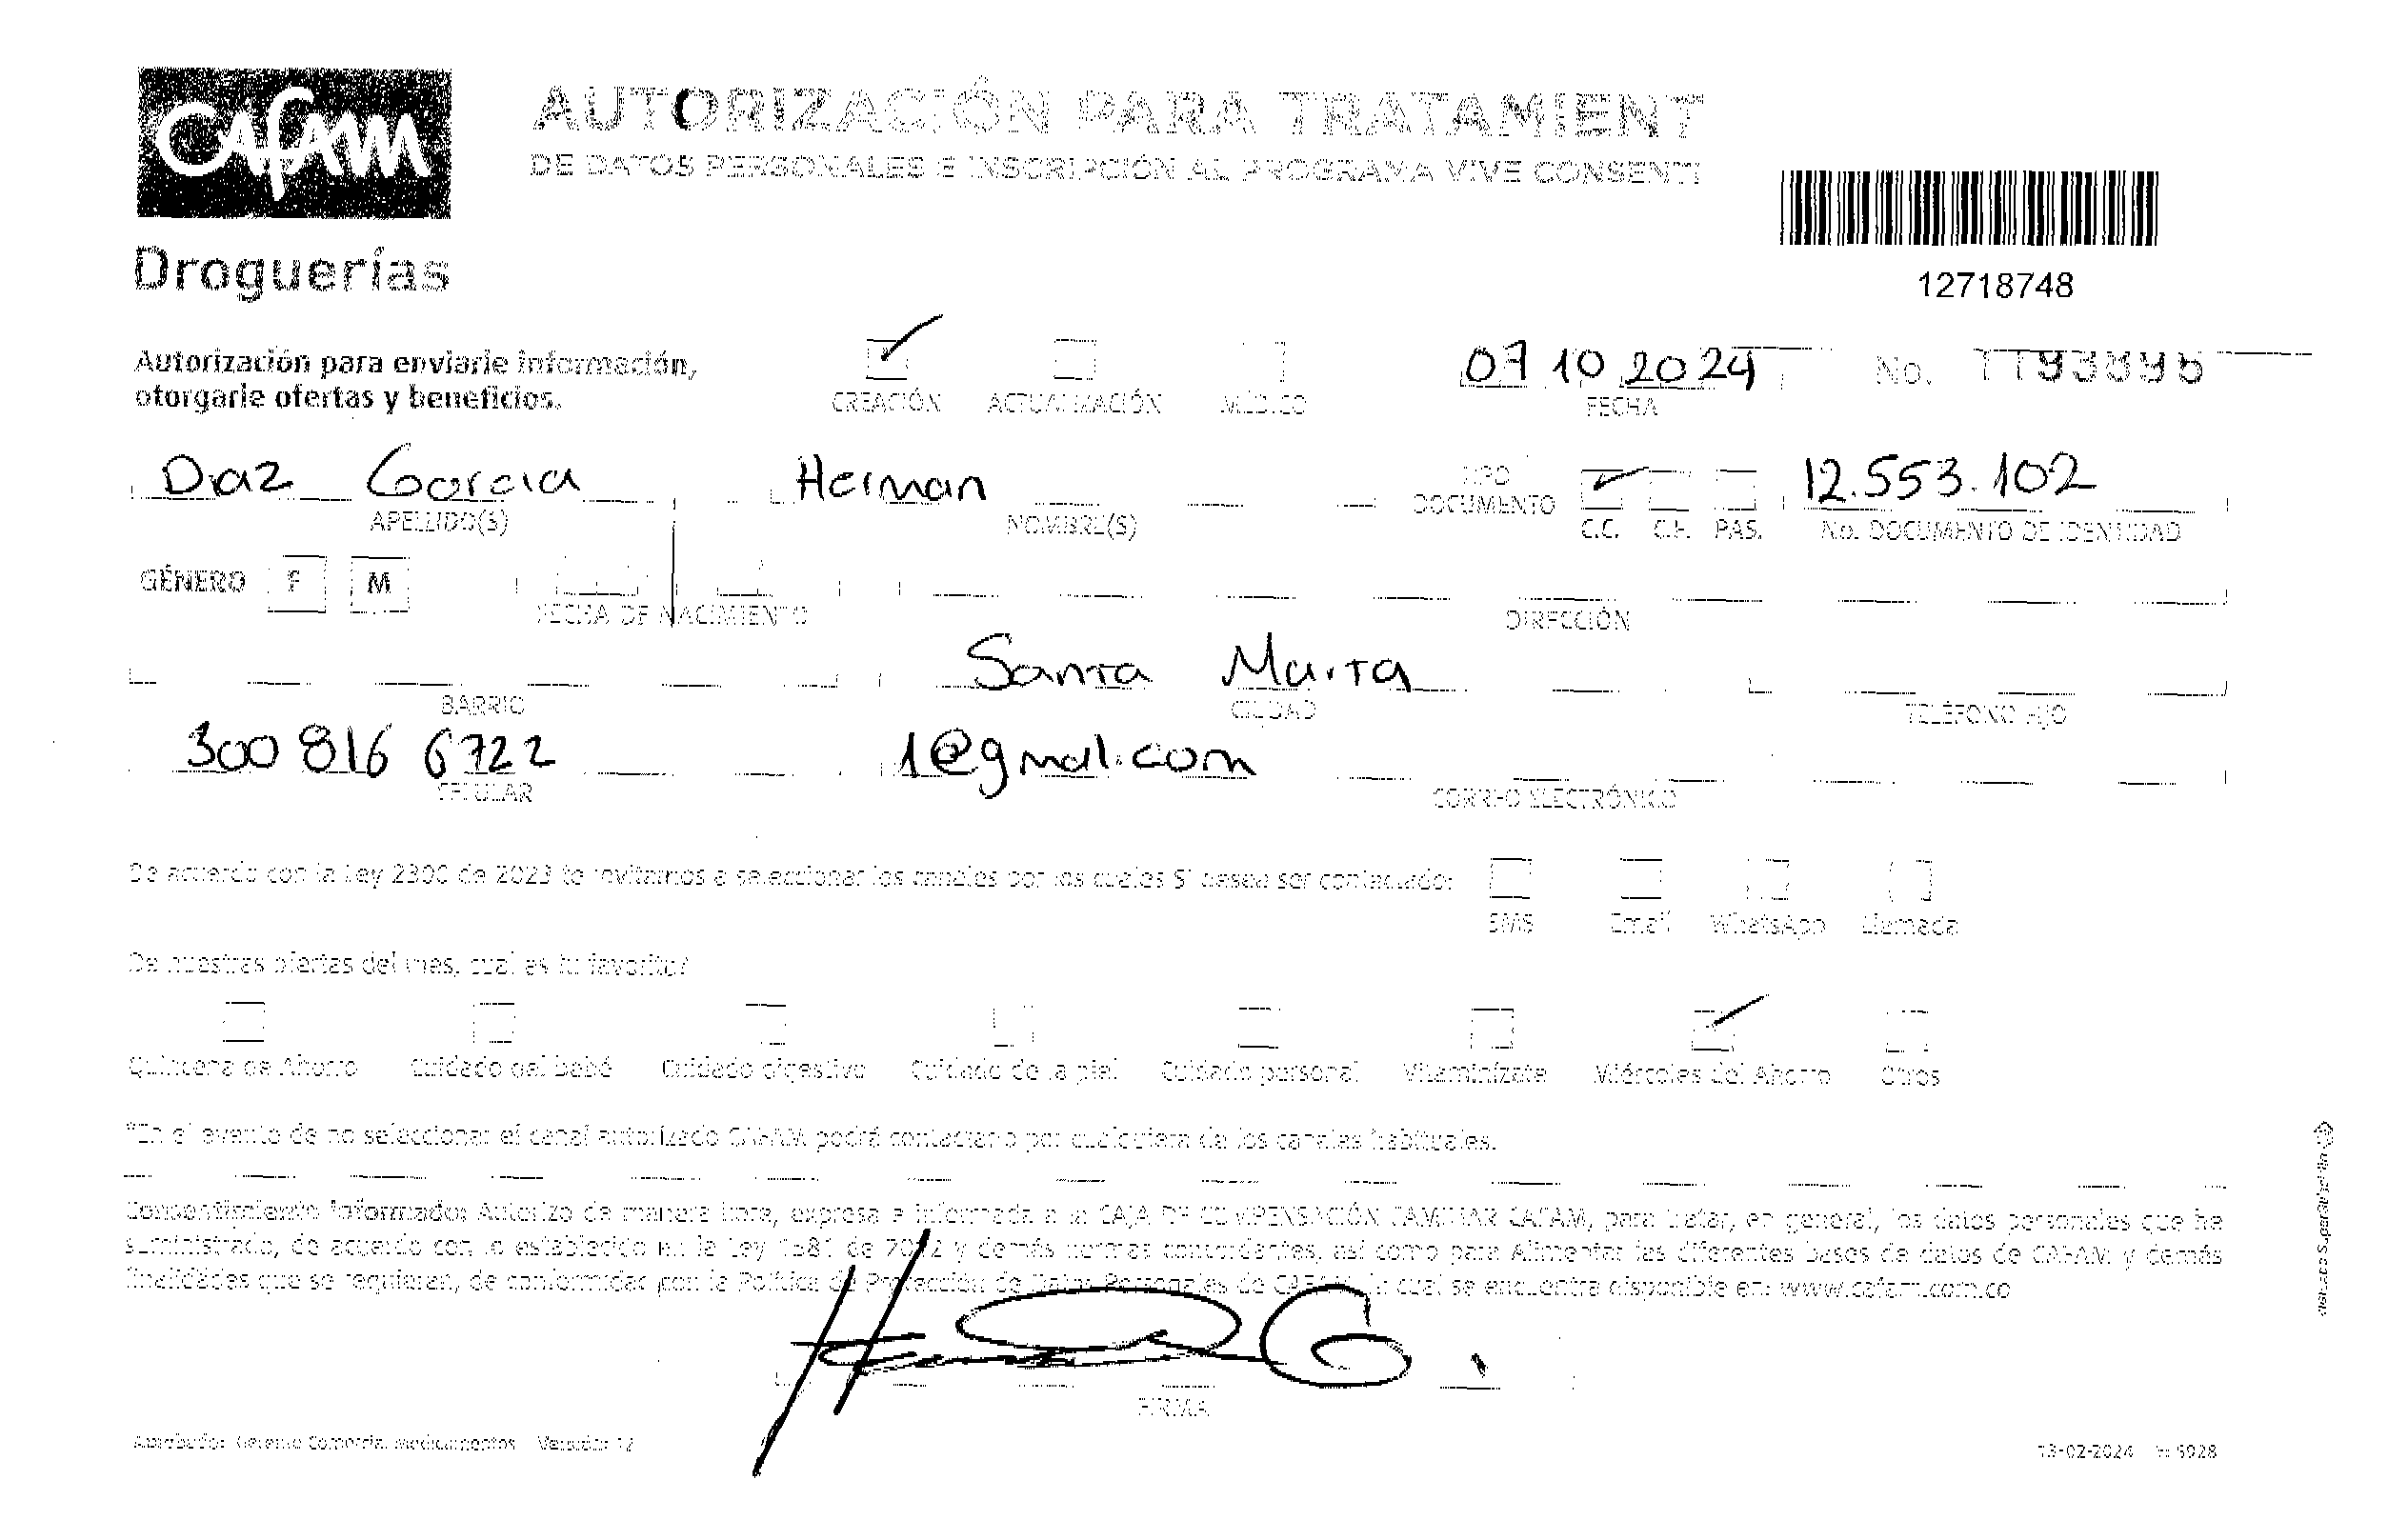 CAfAM
Droguerías
AUTORIZACIÓN PARA TRATAMIENT
DE DATOS PERSONALES E INSCRIPCIÓN AL PROGRAMA VIVE CONSENTI
12718748
Autorización para enviarle información,
otorgarle ofertas y beneficios.
CREACIÓN ACTUALIZACIÓN MÉDICO
07 10 2024
FECHA
No.
Diaz Garcia Herman
APELLIDO(S) NOMBRE(S)
TIPO DOCUMENTO C.C. C.E. PAS.
12.553.102
No. DOCUMENTO DE IDENTIDAD
GÉNERO F M FECHA DE NACIMIENTO DIRECCIÓN
Santa Marta
BARRIO CIUDAD TELÉFONO FIJO
300 816 6722 1@gmal.com
CELULAR CORREO ELECTRÓNICO
De acuerdo con la Ley 2300 de 2023 te invitamos a seleccionar los canales por los cuales SI desea ser contactado:
SMS Email WhatsApp Llamada
De nuestras ofertas del mes, cual es tu favorita?
Quincena de Ahorro Cuidado del bebé Cuidado digestivo Cuidado de la piel Cuidado personal Vitaminízate Miércoles del Ahorro Otros
*En el evento de no seleccionar el canal autorizado CAFAM podrá contactarlo por cualquiera de los canales habituales.
Consentimiento Informado: Autorizo de manera libre, expresa e informada a la CAJA DE COMPENSACIÓN FAMILIAR CAFAM, para tratar, en general, los datos personales que he
suministrado, de acuerdo con lo establecido en la Ley 1581 de 2012 y demás normas concordantes, así como para Alimentar las diferentes bases de datos de CAFAM y demás
finalidades que se requieran, de conformidad con la Política de Protección de Datos Personales de CAFAM, la cual se encuentra disponible en: www.cafam.com.co
FIRMA
Aprobado: Gerente Comercial Medicamentos Versión: 12
13-02-2024